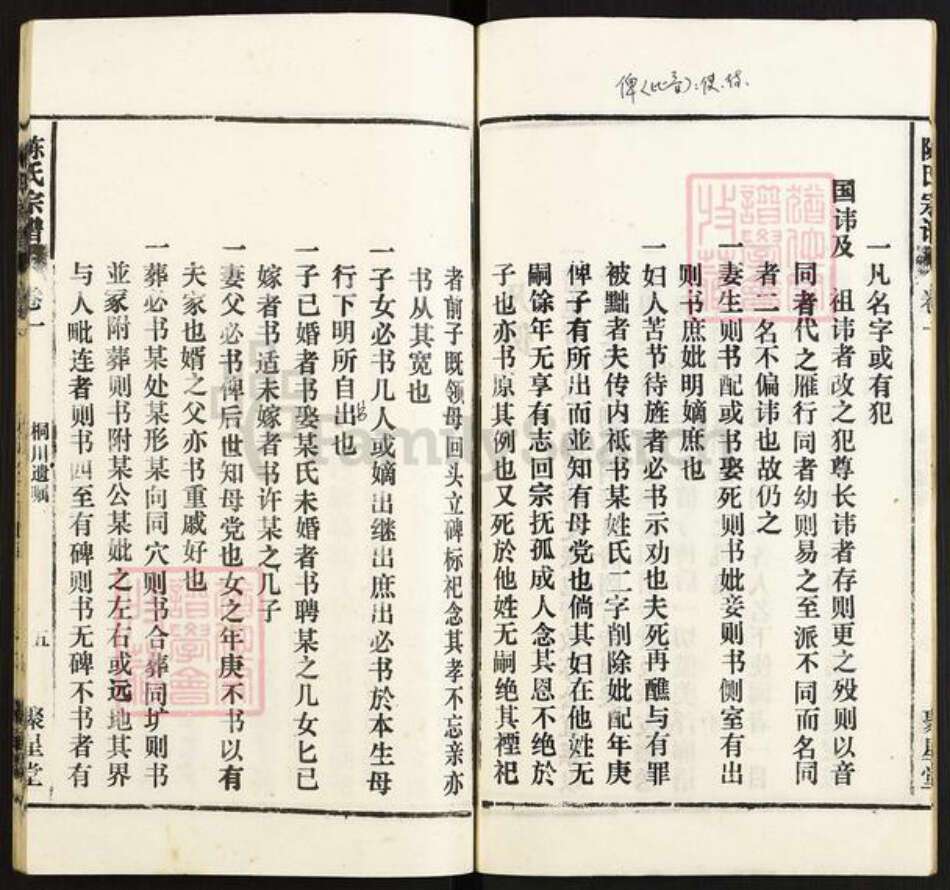 俾(比音):使.待.
陈氏宗谱
卷一
一凡名字或有犯
国讳及 祖讳者改之犯尊长讳者存则更之殁则以音
同者代之雁行同者幼则易之至派不同而名同
者二名不偏讳也故仍之
一妻生则书配或书娶死则书妣妾则书侧室有出
则书庶妣明嫡庶也
一妇人苦节待旌者必书示劝也夫死再醮与有罪
被黜者夫传内祗书某姓氏二字削除妣配年庚
俾子有所出而並知有母党也倘其妇在他姓无
嗣馀年无享有志回宗抚孤成人念其恩不绝於
子也亦书原其例也又死於他姓无嗣绝其禋祀
聚星堂
者前子既领母回头立碑标祀念其孝不忘亲亦
书从其宽也
一子女必书几人或嫡出继出庶出必书於本生母
行下明所自出也
一子已婚者书娶某氏未婚者书聘某之几女匕已
嫁者书适未嫁者书许某之几子
一妻父必书俾后世知母党也女之年庚不书以有
夫家也婿之父亦书重戚好也
一葬必书某处某形某向同穴则书合葬同圹则书
並冢附葬则书附某公某妣之左右或远地其界
与人毗连者则书四至有碑则书无碑不书者有
陈氏宗谱
卷一
桐川遗嘱
五
聚星堂